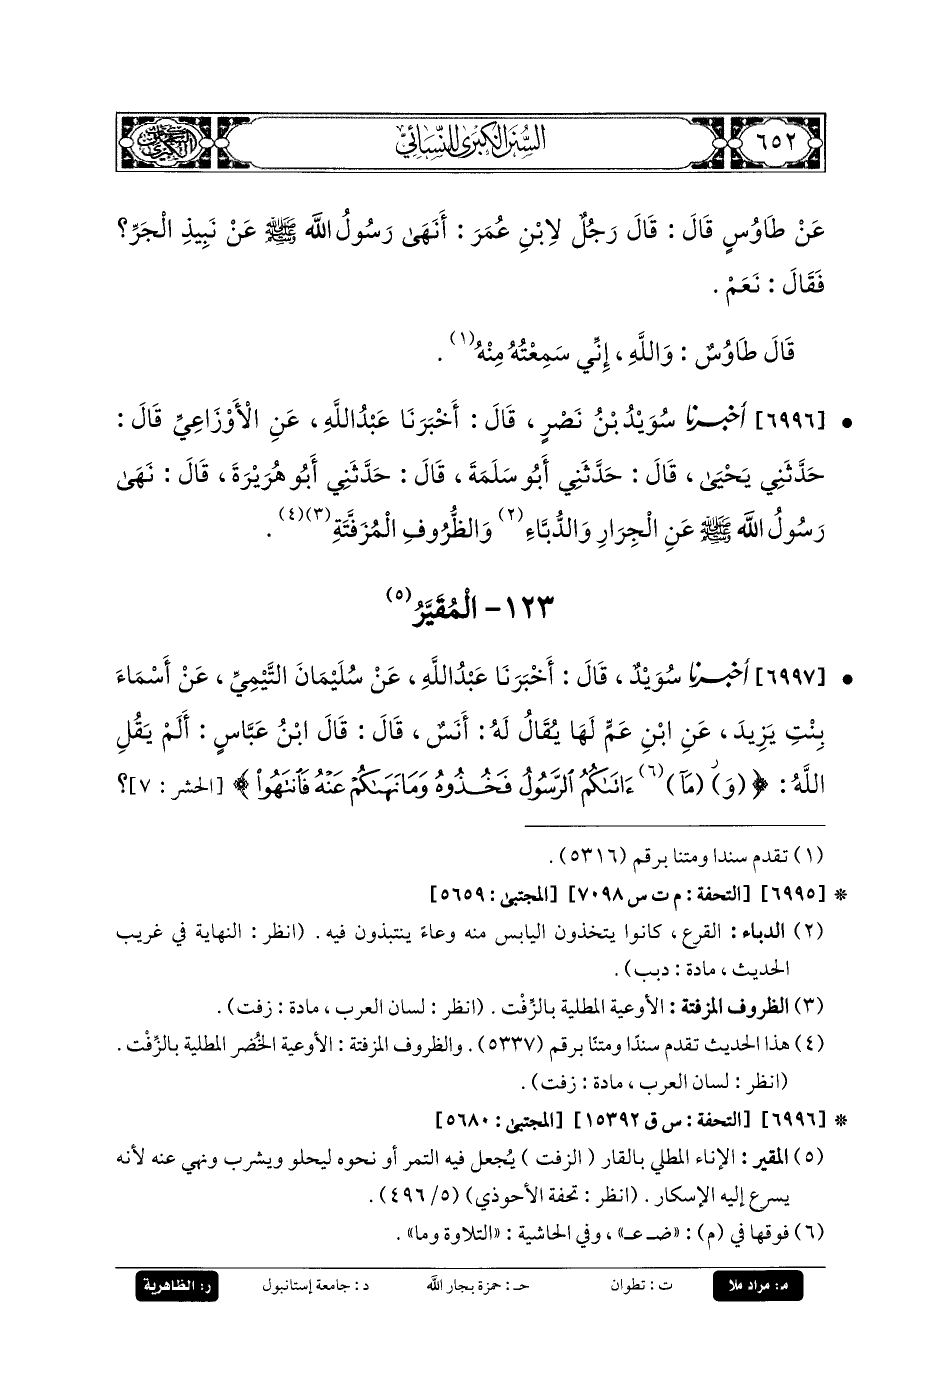 ٦٥٢
السنن الكبرى للنسائي
عَنْ طَاوُسٍ قَالَ : قَالَ رَجُلٌ لِابْنِ عُمَرَ : أَنَهَىٰ رَسُولُ اللَّه ﷺ عَنْ نَبِيذِ الْجَرِّ؟
فَقَالَ : نَعَمْ .
قَالَ طَاوُسٌ : وَاللَّهِ ، إِنِّي سَمِعْتُهُ مِنْهُ(١) .
• [٦٩٩٦] أخبرنا سُوَيْدُ بْنُ نَصْرٍ ، قَالَ : أَخْبَرَنَا عَبْدُاللَّهِ ، عَنِ الْأَوْزَاعِيِّ قَالَ :
حَدَّثَنِي يَحْيَىٰ ، قَالَ : حَدَّثَنِي أَبُو سَلَمَةَ ، قَالَ : حَدَّثَنِي أَبُو هُرَيْرَةَ ، قَالَ : نَهَىٰ
رَسُولُ اللَّه ﷺ عَنِ الْجِرَارِ وَالدُّبَّاءِ(٢) وَالظُّرُوفِ الْمُزَفَّتَةِ(٣)(٤) .
١٢٣- الْمُقَيَّرُ(٥)
• [٦٩٩٧] أخبرنا سُوَيْدٌ ، قَالَ : أَخْبَرَنَا عَبْدُاللَّهِ ، عَنْ سُلَيْمَانَ التَّيْمِيِّ ، عَنْ أَسْمَاءَ
بِنْتِ يَزِيدَ ، عَنِ ابْنِ عَمٍّ لَهَا يُقَالُ لَهُ : أَنَسٌ ، قَالَ : قَالَ ابْنُ عَبَّاسٍ : أَلَمْ يَقُلِ
اللَّهُ : ﴿ (وَ) (مَآ)(٦) ءَاتَىٰكُمُ ٱلرَّسُولُ فَخُذُوهُ وَمَا نَهَىٰكُمْ عَنْهُ فَٱنتَهُوا۟ ﴾ [الحشر : ٧]؟
(١) تقدم سندا ومتنا برقم (٥٣١٦) .
* [٦٩٩٥] [التحفة : م ت س ٧٠٩٨] [المجتبى : ٥٦٥٩]
(٢) الدباء : القرع ، كانوا يتخذون اليابس منه وعاءً ينتبذون فيه . (انظر : النهاية في غريب
الحديث ، مادة : دبب) .
(٣) الظروف المزفتة : الأوعية المطلية بالزِّفْت . (انظر : لسان العرب ، مادة : زفت) .
(٤) هذا الحديث تقدم سندًا ومتنًا برقم (٥٣٣٧) . والظروف المزفتة : الأوعية الخُضر المطلية بالزِّفْت .
(انظر : لسان العرب ، مادة : زفت) .
* [٦٩٩٦] [التحفة : س ق ١٥٣٩٢] [المجتبى : ٥٦٨٠]
(٥) المقير : الإناء المطلي بالقار (الزفت) يُجعل فيه التمر أو نحوه ليحلو ويشرب ونهي عنه لأنه
يسرع إليه الإسكار . (انظر : تحفة الأحوذي) (٥/ ٤٩٦) .
(٦) فوقها في (م) : «ضـ عـ» ، وفي الحاشية : «التلاوة وما» .
م: مراد ملا ت : تطوان حـ : حمزة بجار اللَّه د : جامعة إستانبول ر: الظاهرية